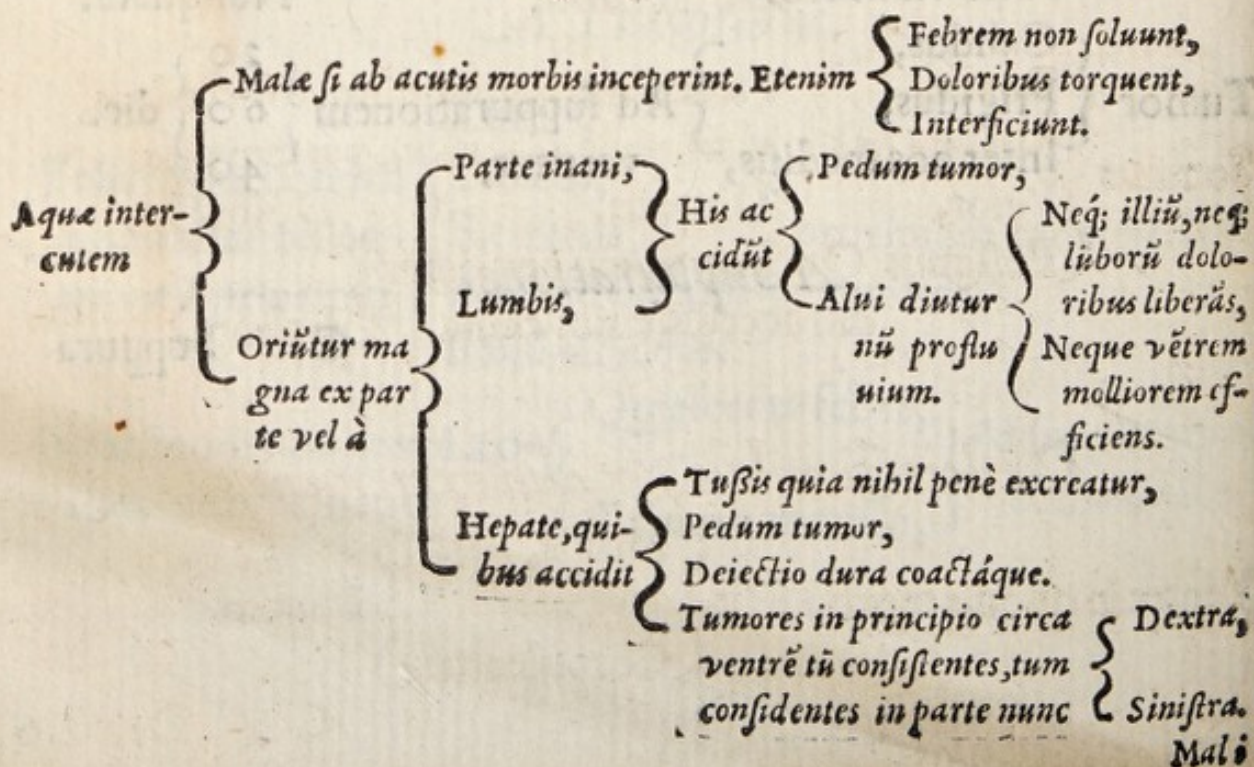 Aquæ inter-
cutem
Malæ ſi ab acutis morbis inceperint. Etenim
Febrem non ſoluunt,
Doloribus torquent,
Interficiunt.
Oriũtur ma
gna ex par
te vel à
Parte inani,
Lumbis,
His ac
cidũt
Pedum tumor,
Alui diutur
nũ proflu
uium.
Neq́; illiũ, neq;
lũborũ dolo-
ribus liberãs,
Neque vẽtrem
molliorem ef-
ficiens.
Hepate, qui-
bus accidit
Tußis quia nihil penè excreatur,
Pedum tumor,
Deiectio dura coactáque.
Tumores in principio circa
ventrẽ tũ conſiſtentes, tum
conſidentes in parte nunc
Dextra,
Siniſtra.
Mali